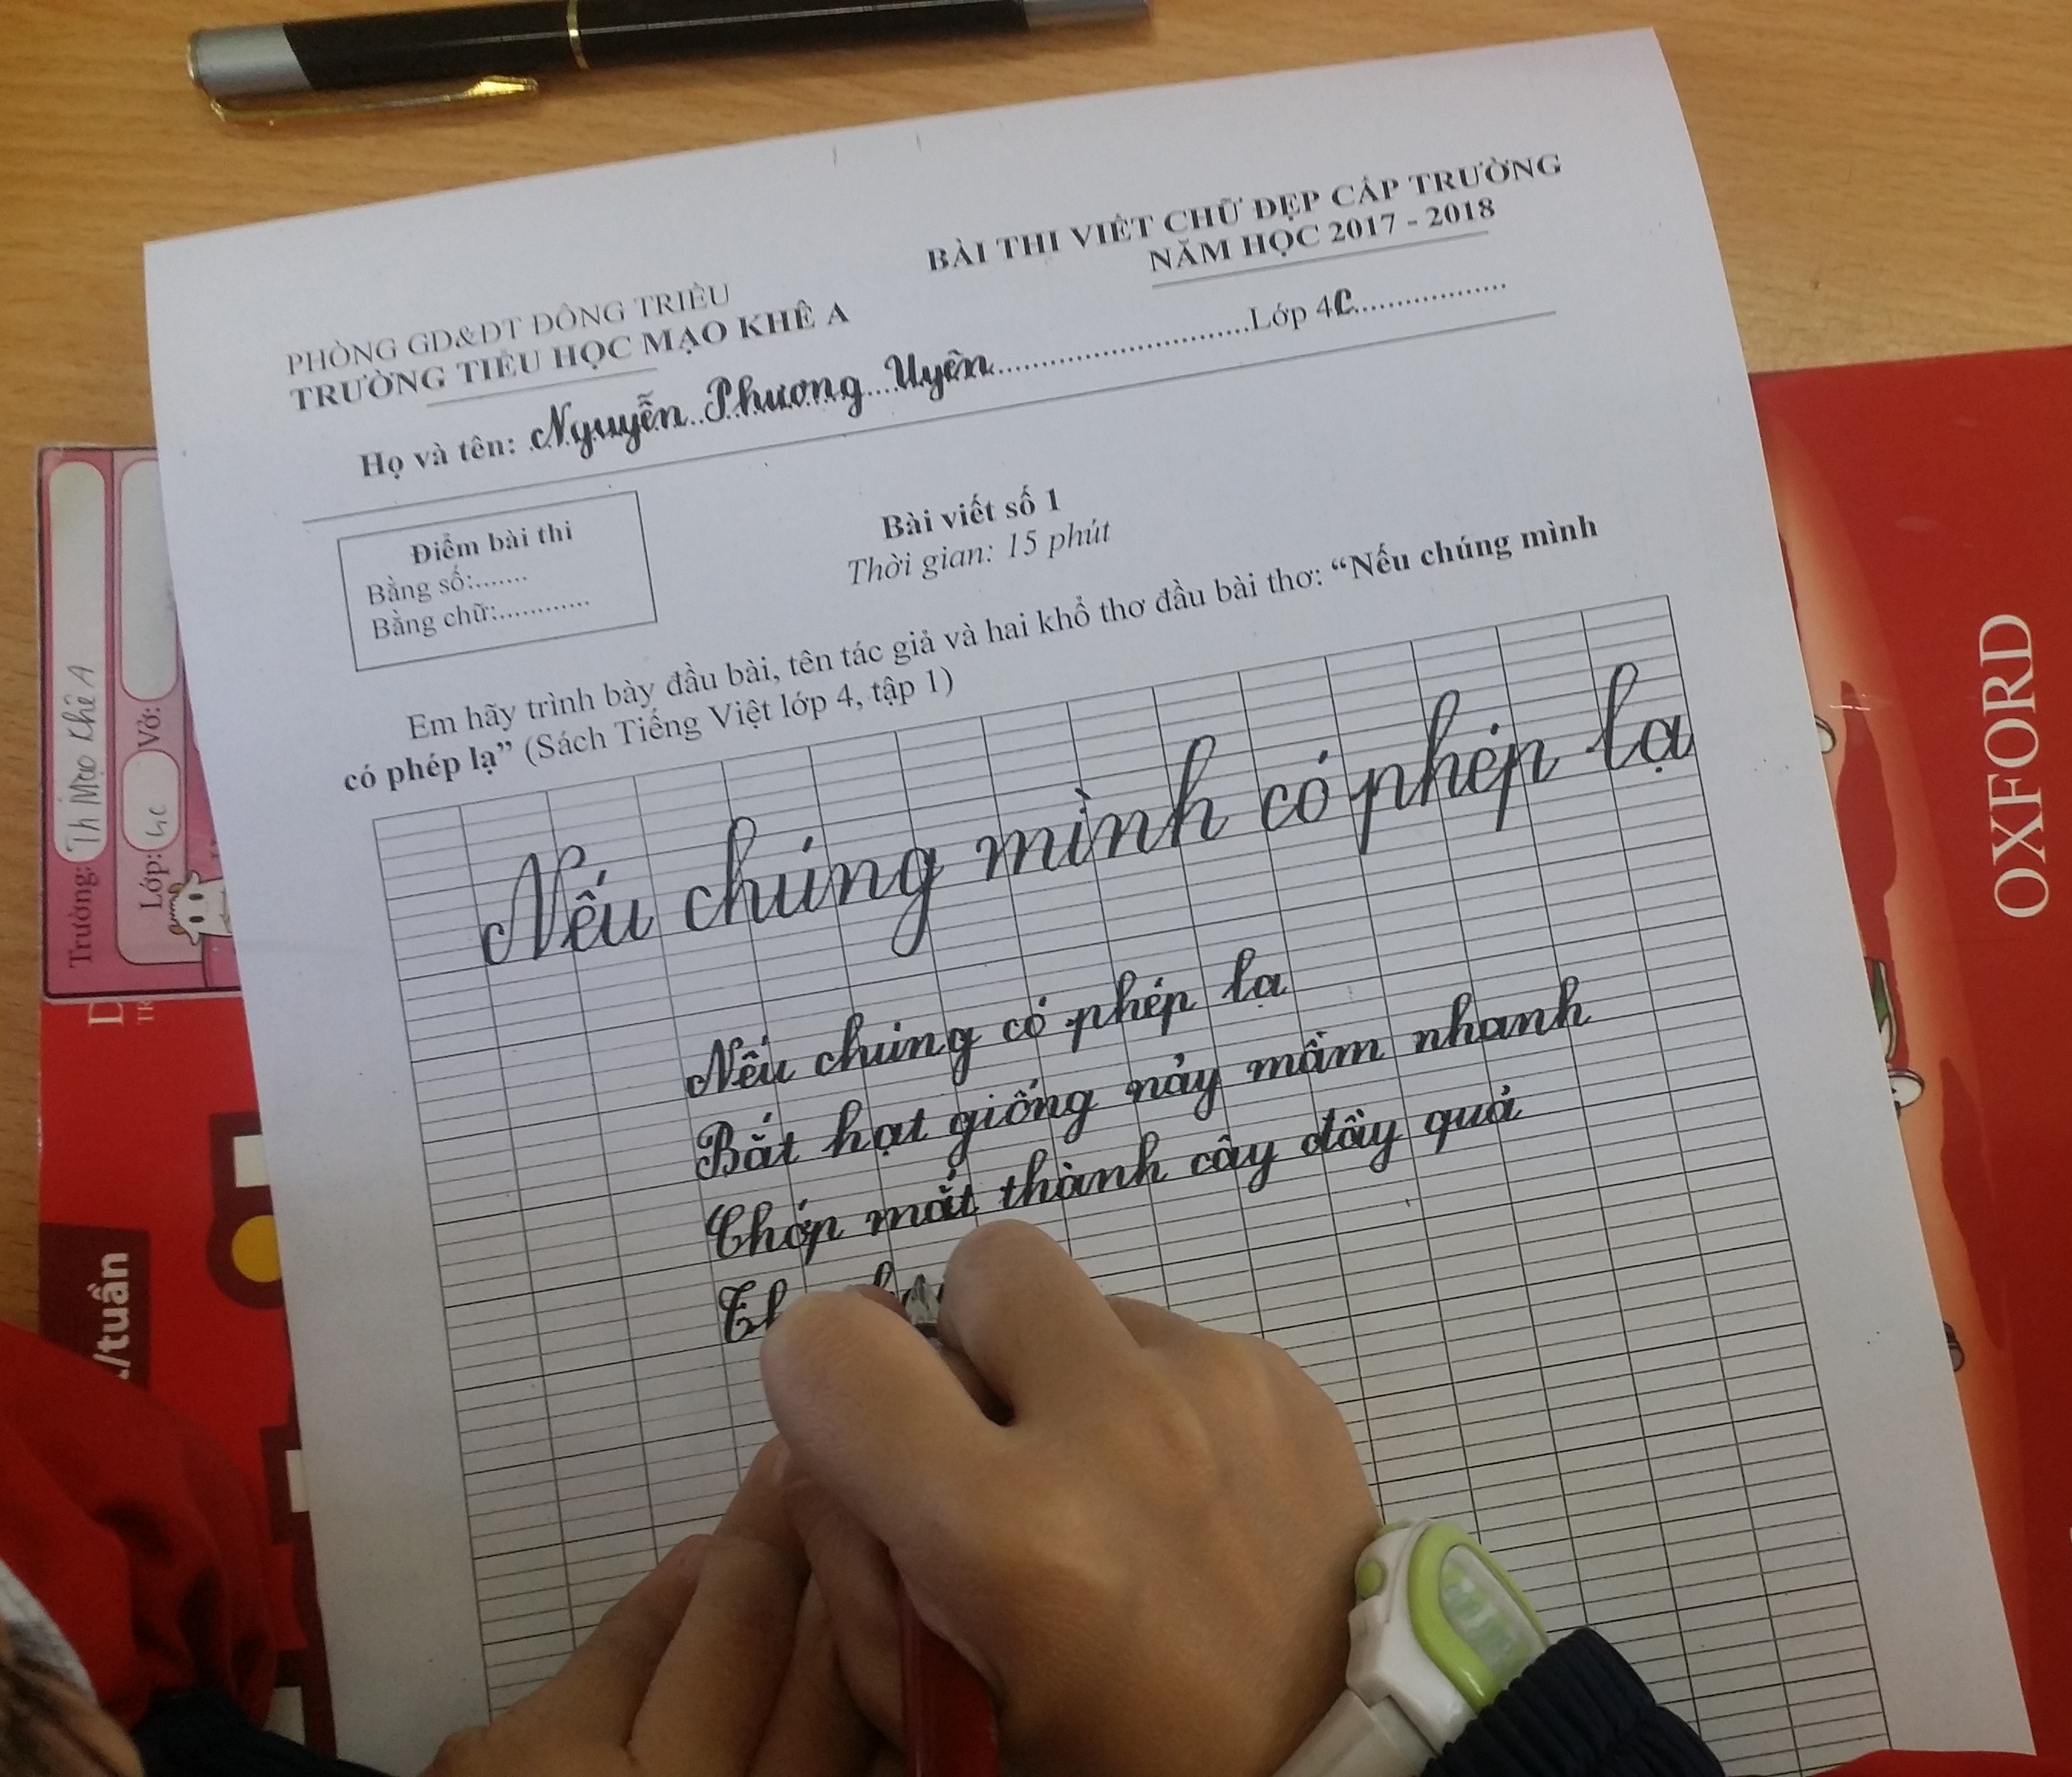 PHÒNG GD&ĐT ĐÔNG TRIỀU
TRƯỜNG TIỂU HỌC MẠO KHÊ A
BÀI THI VIẾT CHỮ ĐẸP CẤP TRƯỜNG
NĂM HỌC 2017 - 2018
Họ và tên: Nguyễn Phương Uyên Lớp 4C
Điểm bài thi
Bằng số:.......
Bằng chữ:............
Bài viết số 1
Thời gian: 15 phút
Em hãy trình bày đầu bài, tên tác giả và hai khổ thơ đầu bài thơ: “Nếu chúng mình
có phép lạ” (Sách Tiếng Việt lớp 4, tập 1)
Nếu chúng mình có phép lạ
Nếu chúng có phép lạ
Bắt hạt giống nảy mầm nhanh
Chớp mắt thành cây đầy quả
Trường: Th Mạo Khê A
Lớp: 4c Vở:
/tuần
OXFORD